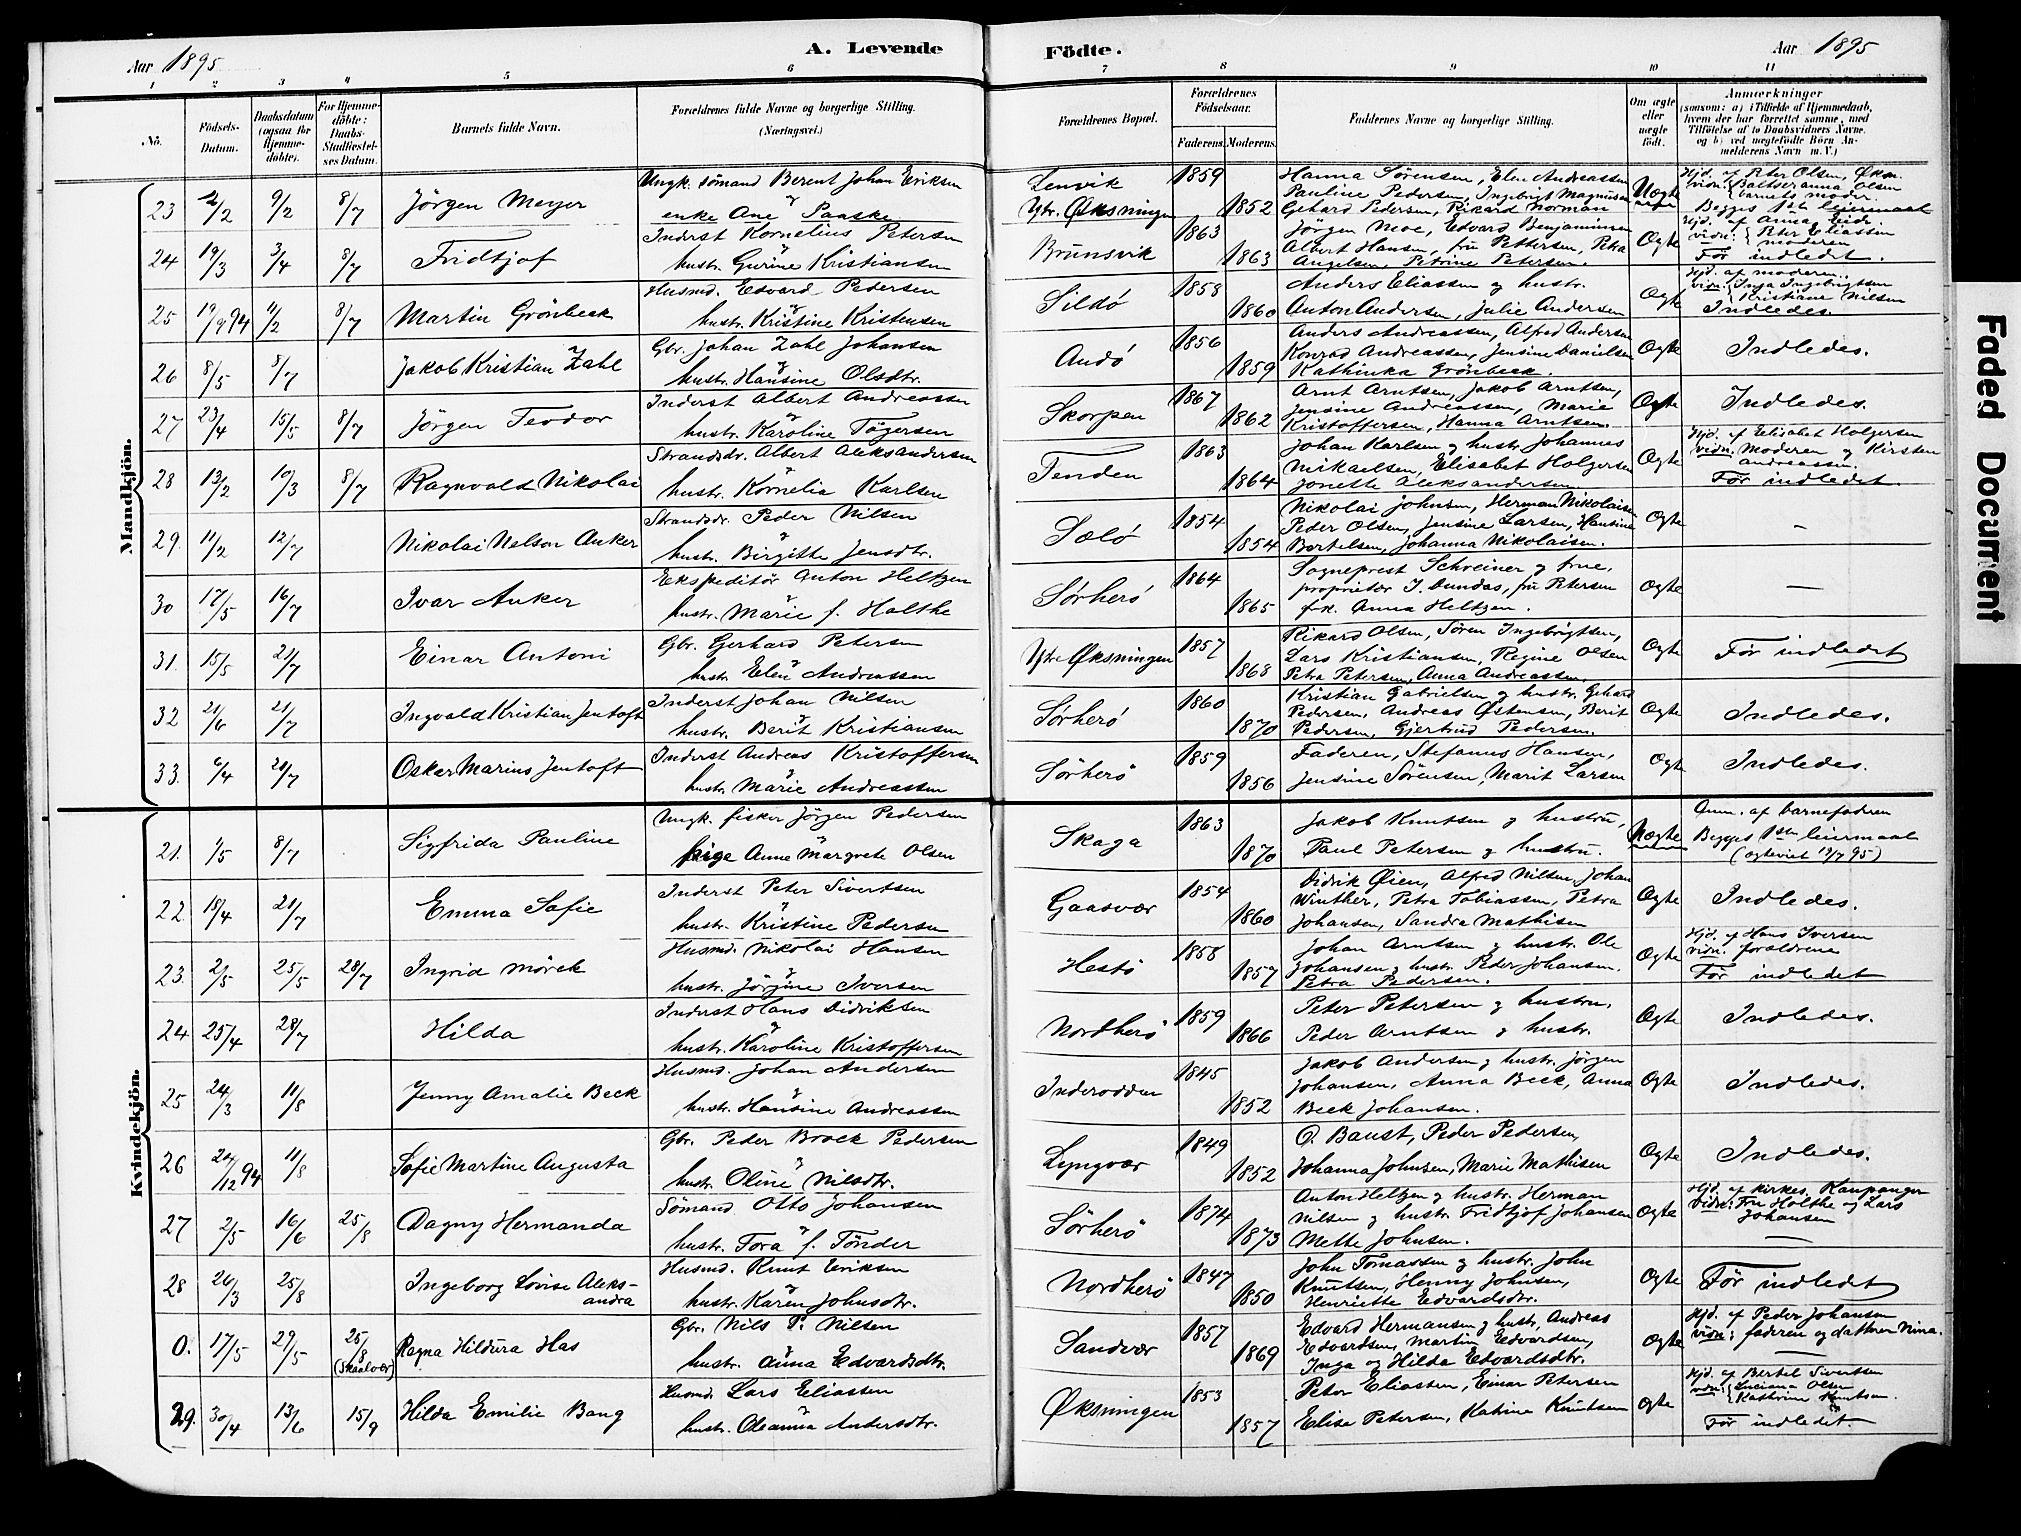 Aar 1895
A. Levende
Födte.
Aar 1895
1 2 3 4 5 6 7 8 9 10 11
No.
Födsels-Datum.
Daabsdatum (ogsaa for Hjemmedöbte).
For Hjemmedöbte: Daabs-Stadfæstelses Datum.
Barnets fulde Navn.
Forældrenes fulde Navne og borgerlige Stilling. (Næringsvei.)
Forældrenes Bopæl.
Forældrenes Födselsaar.
Faderens. Moderens.
Faddernes Navne og borgerlige Stilling.
Om ægte eller uægte födt.
Anmærkninger
(saasom: a) i Tilfælde af Hjemmedaab,
hvem der har forrettet samme, med
Tilföielse af to Daabsvidners Navne.
og b) ved uægtefödte Börn An-
melderens Navn m. V.)
Mandkjön.
23 2/2 9/2 8/7 Jörgen Meyer Ungk. sömand Berent Johan Eriksen
enke Ane Paaske
Lenvik Ytr. Øksningen 1859 1852 Hanna Sörensen, Elen Andreassen
Pauline Pedersen, Ingebrigt Magnusen
Gehard Pedersen, Rikard Norman
Uægte Hjd. af Peter Olsen, Øksn.
vidn: Baltseranna Olsen
barnets moder.
Begges 1ste leiermaal
24 19/3 3/4 8/7 Fridtjof Inderst Kornelius Petersen
hustr. Gurine Kristiansen
Brunsvik 1863 1863 Jörgen Moe, Edvard Benjaminsen
Albert Hansen, fru Pettersen, Petra
Angelsen, Petrine Petersen.
Ægte Hjd. af Anna Eidr.
vidn: Peter Eliassen
moderen
Før indledet.
25 19/9 94 11/2 8/7 Martin Grönbeck Husmd. Edvard Pedersen
hustr. Kristine Kristensen
Sildö 1858 1860 Anders Eliassen og hustr.
Anton Andersen, Julie Andersen
Ægte Hjd. af moderen.
vidn: Inga Ingebrigtsen
Kristiane Nilsen
Indledes.
26 8/5 8/7 Jakob Kristian Zahl Gbr. Johan Zahl Johansen
hustr. Hansine Olsdtr.
Andö 1856 1859 Anders Andreassen, Alfred Andersen
Konrad Andreassen, Jensine Danielsen
Kathinka Grönbeck.
Ægte Indledes.
27 23/4 15/5 8/7 Jörgen Teodor Inderst Albert Andreassen
hustr. Karoline Tögersen
Skorpen 1867 1862 Arnt Arntsen, Jakob Arntsen,
Jensine Andreassen, Marie
Kristoffersen, Hanna Arntsen.
Ægte Indledes.
28 13/2 10/3 8/7 Ragnvald Nikolai Strandsdr. Albert Aleksandersen
hustr. Kornelia Karlsen
Tenden 1863 1864 Johan Karlsen og hustr. Johannes
Mikaelsen, Elisabet Holgersen
Jonette Aleksandersen
Ægte Hjd. af Elisabet Holgersen
vidn. Moderen og Kirsten
Andreassen.
Før indledet.
29. 11/2 12/7 Nikolai Nelson Anker Strandsdr. Peder Nilsen
hustr. Birgitte Jensdtr.
Sælö 1854 1854 Nikolai Johnsen, Herman Nikolaisen
Peder Olsen, Jensine Larsen, Hansine
Bertelsen, Johanna Nikolaisen.
Ægte —
30 17/5 16/7 Ivar Anker Ekspeditör Anton Heltzen
hustr. Marie f. Holthe
Sörherö 1864 1865 Sogneprest Schreiner og frue,
proprietær I. Dundas, fru Petersen
frk. Anna Heltzen.
Ægte —
31. 15/5 21/7 Einar Antoni Gbr. Gerhard Petersen
hustr. Elen Andreassen
Ytre Øksningen 1857 1868 Rikard Olsen, Sören Ingebrigtsen,
Lars Kristiansen, Regine Olsen
Petra Petersen, Anna Andreassen.
Ægte Før indledet
32 21/6 21/7 Ingvald Kristian Jentoft Inderst Johan Nilsen
hustr. Berit Kristiansen
Sörherö 1860 1870 Kristian Gabrielsen og hustr. Gehard
Pedersen, Andreas Østensen, Berit
Pedersen, Gjertrud Pedersen.
Ægte Indledes.
33. 6/4 20/7 Oskar Marius Jentoft Inderst Andreas Kristoffersen
hustr. Marie Andreassen
Sörherö 1859 1856 Faderen, Stefanus Hansen,
Jensine Sörensen, Marit Larsen
Ægte Indledes.
Kvindekjön.
21. 1/5 8/7 Sigfrida Pauline Ungk. fisker Jörgen Pedersen
pige Anne Margrete Olsen
Skaga 1863 1870 Jakob Knutsen og hustru,
Paul Petersen og hustru.
Uægte Anm. af barnefaderen
Begges 1ste leiermaal
(ægteviet 19/7 95)
22 18/4 21/7 Emma Sofie Inderst Peter Sivertsen
hustr. Kristine Pedersen
Gaasvær 1854 1860 Didrik Øien, Alfred Nilsen, Johan
Winther, Petra Tobiassen, Petra
Johansen, Sandra Mathisen
Ægte Indledes.
23. 2/5 25/5 28/7 Ingrid Mörck Husmd. Nikolai Hansen
hustr. Jörgine Iversen
Hestö 1858 1857 Johan Arntsen og hustr. Ole
Johansen og hustr. Peder Johansen.
Petra Pedersen.
Ægte Hjd. af Hans Iversen
vidn. forældrene
Før indledet
24 25/4 28/7 Hilda Inderst Hans Didriksen
hustr. Karoline Kristoffersen
Nordherö 1859 1866 Peter Petersen og hustru,
Peder Arntsen og hustr.
Ægte Indledes.
25 24/3 11/8 Jenny Amalie Beck Husmd. Johan Andersen
hustr. Hansine Andreassen
Inderodden 1845 1852 Jakob Andersen og hustr. Jörgen
Johansen, Anna Beck, Anna
Beck Johansen.
Ægte Indledes.
26 24/12 94 11/8 Sofie Martine Augusta Gbr. Peder Brock Pedersen
hustr. Oline Nilsdtr.
Lyngvær 1849 1852 O. Baust, Peder Pedersen,
Johanna Johnsen, Marie Mathisen
Ægte Indledes.
27 2/5 16/6 25/8 Dagny Hermanda Sömand Otto Johansen
hustr. Tora f. Tönder
Sörherö 1874 1873 Anton Heltzen og hustr. Herman
Nilsen og hustr. Fridtjof Johansen
Mette Johnsen.
Ægte Hjd. af kirkes. Kaupanger
vidn: Fru Holthe og Lars
Johansen
—
28 26/3 25/8 Ingeborg Lovise Aleks-
andra
Husmd. Knut Eriksen
hustr. Karen Johnsdtr.
Nordherö 1847 1850 John Tomassen og hustr. John
Knutsen, Henny Johnsen,
Henriette Edvardsdtr.
Ægte Før indledet
0. 17/5 29/5 25/8 (Skaalvær) Ragna Hildura Has Gbr. Nils P. Nilsen
hustr. Anna Edvardsdtr.
Sandvær 1857 1869 Edvard Hermansen og hustr, Andreas
Edvardsen, Martin Edvardsen,
Inga og Hilda Edvardsdtr.
Ægte Hjd. af Peder Johansen
vidn: faderen og datteren Nina.
29. 30/4 13/6 15/9 Hilda Emilie Bang Husmd. Lars Eliassen
hustr. Oleanna Andersdtr.
Øksningen 1853 1857 Peter Eliassen, Einar Petersen
Elise Petersen, Katrine Knutsen
Ægte Hjd. af Bertel Sivertsen
vidn: Luciana Olsen
Kathrine Knutsen.
Før indledet.
Faded Document